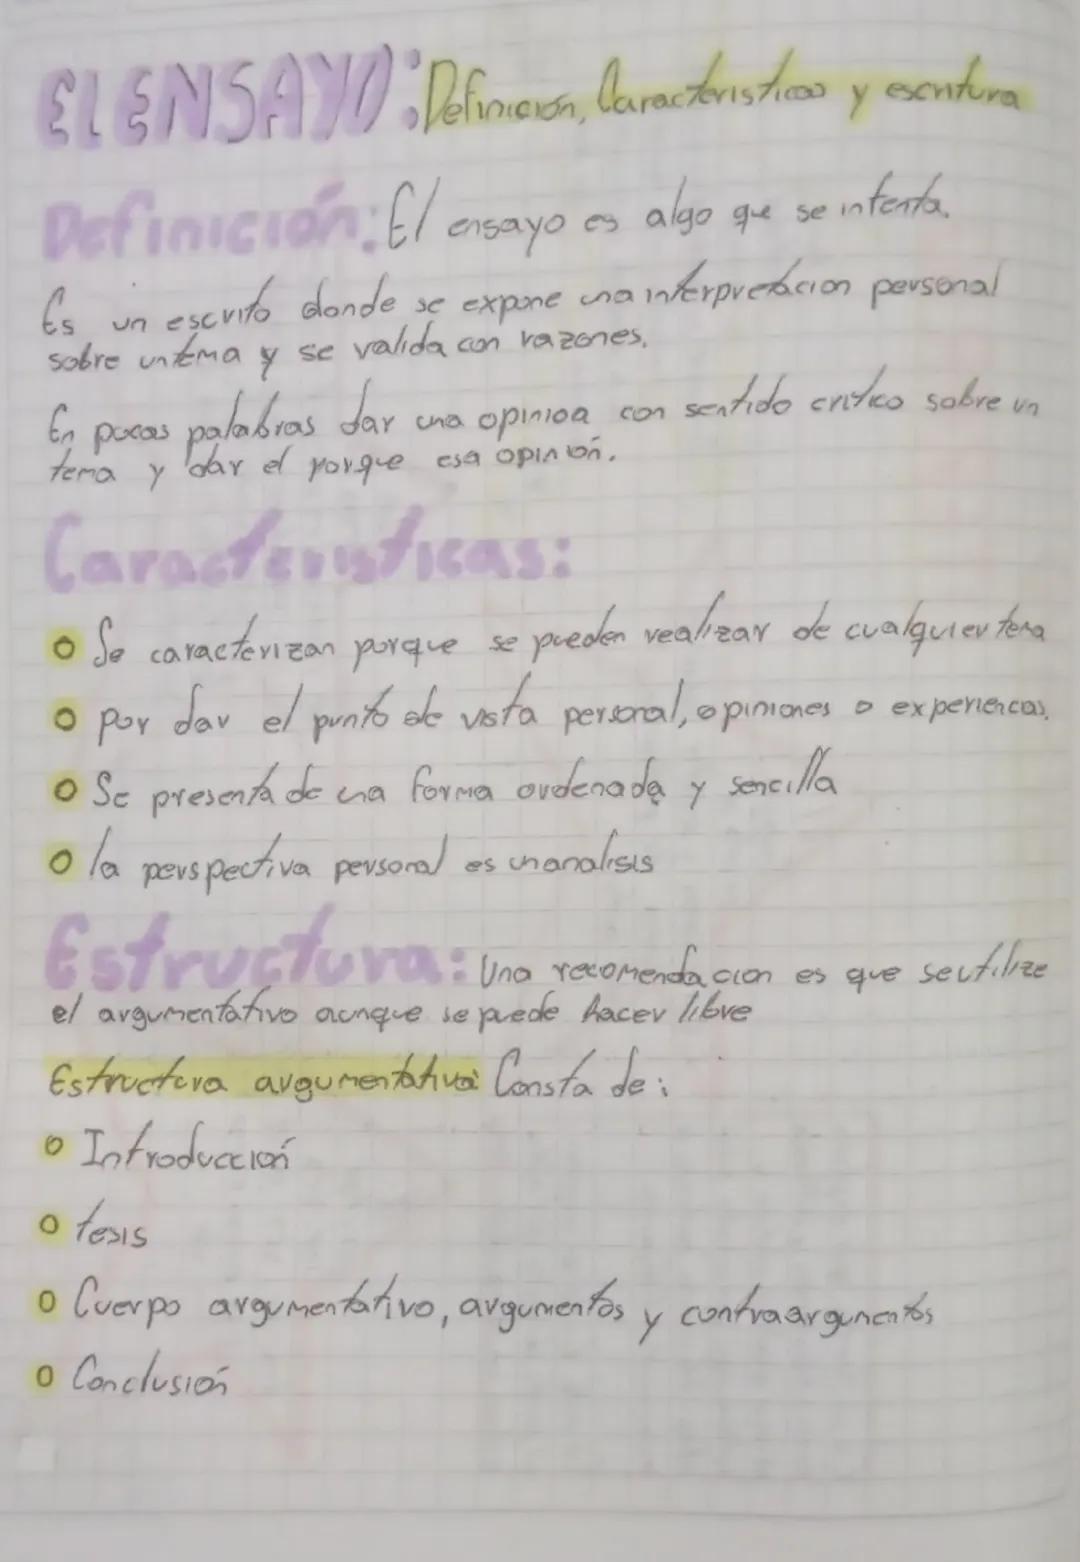 EL ENSAYO: Definición, Caracteristicas y escritura
Definición: El ensayo es algo que se intenta.
Es un escrito donde se expone una interpretacion personal
sobre un tema y se valida con razones.
En pocas palabras dar una opinion con sentido critico sobre un
tema y dar el porque esa opinión.
Caracteristicas:
o Se caracterizan porque se pueden realizar de cualquier tema
o por dar el punto de vista personal, opiniones o experiencias.
o Se presenta de una forma ordenada y sencilla
o la perspectiva personal es un analisis
Estructura: Una recomendacion es que se utilize
el argumentativo aunque se puede hacer libre
Estructura argumentativa: Consta de:
o Introducción
o tesis
o Cuerpo argumentativo, argumentos y contraargumentos
o Conclusión